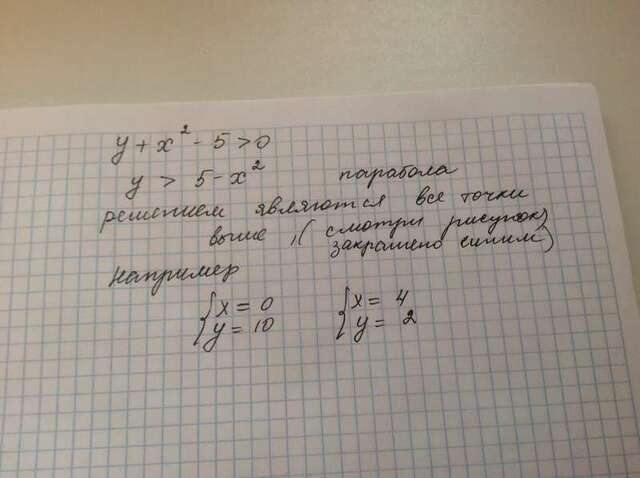 y + x² - 5 > 0
y > 5 - x² парабола
решением являются все точки
выше, (смотри рисунок,
закрашено синим)
например
{ x = 0 { x = 4
{ y = 10 { y = 2